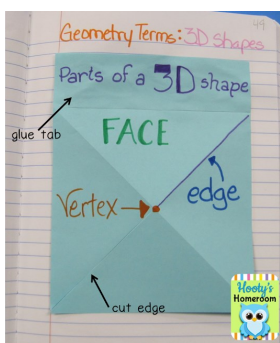 44
Geometry Terms: 3D Shapes
Parts of a 3D shape
glue tab
FACE
edge
Vertex
cut edge
Hooty's
Homeroom